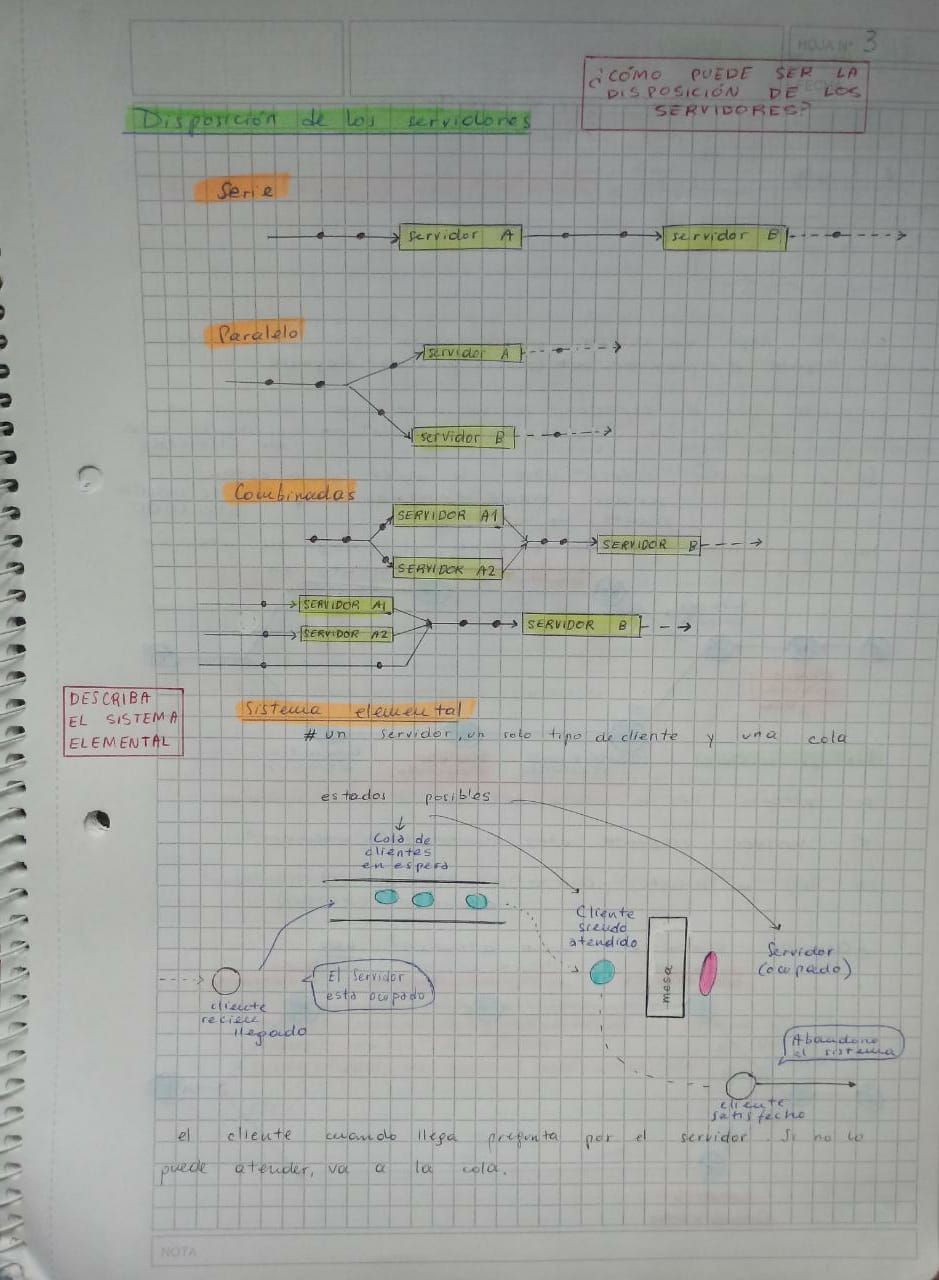 HOJA Nº 3
¿CÓMO PUEDE SER LA
DISPOSICIÓN DE LOS
SERVIDORES?
Disposición de los servidores
Serie
servidor A
servidor B
Paralelo
servidor A
servidor B
Combinadas
SERVIDOR A1
SERVIDOR A2
SERVIDOR B
SERVIDOR A1
SERVIDOR A2
SERVIDOR B
DESCRIBA
EL SISTEMA
ELEMENTAL
Sistema elemental
# un servidor, un solo tipo de cliente y una cola
estados posibles
Cola de
clientes
en espera
Cliente
siendo
atendido
mesa
Servidor
(ocupado)
El servidor
esta ocupado
cliente
recien
llegado
Abandono
el sistema
cliente
satisfecho
el cliente cuando llega pregunta por el servidor. Si no lo
puede atender, va a la cola.
NOTA